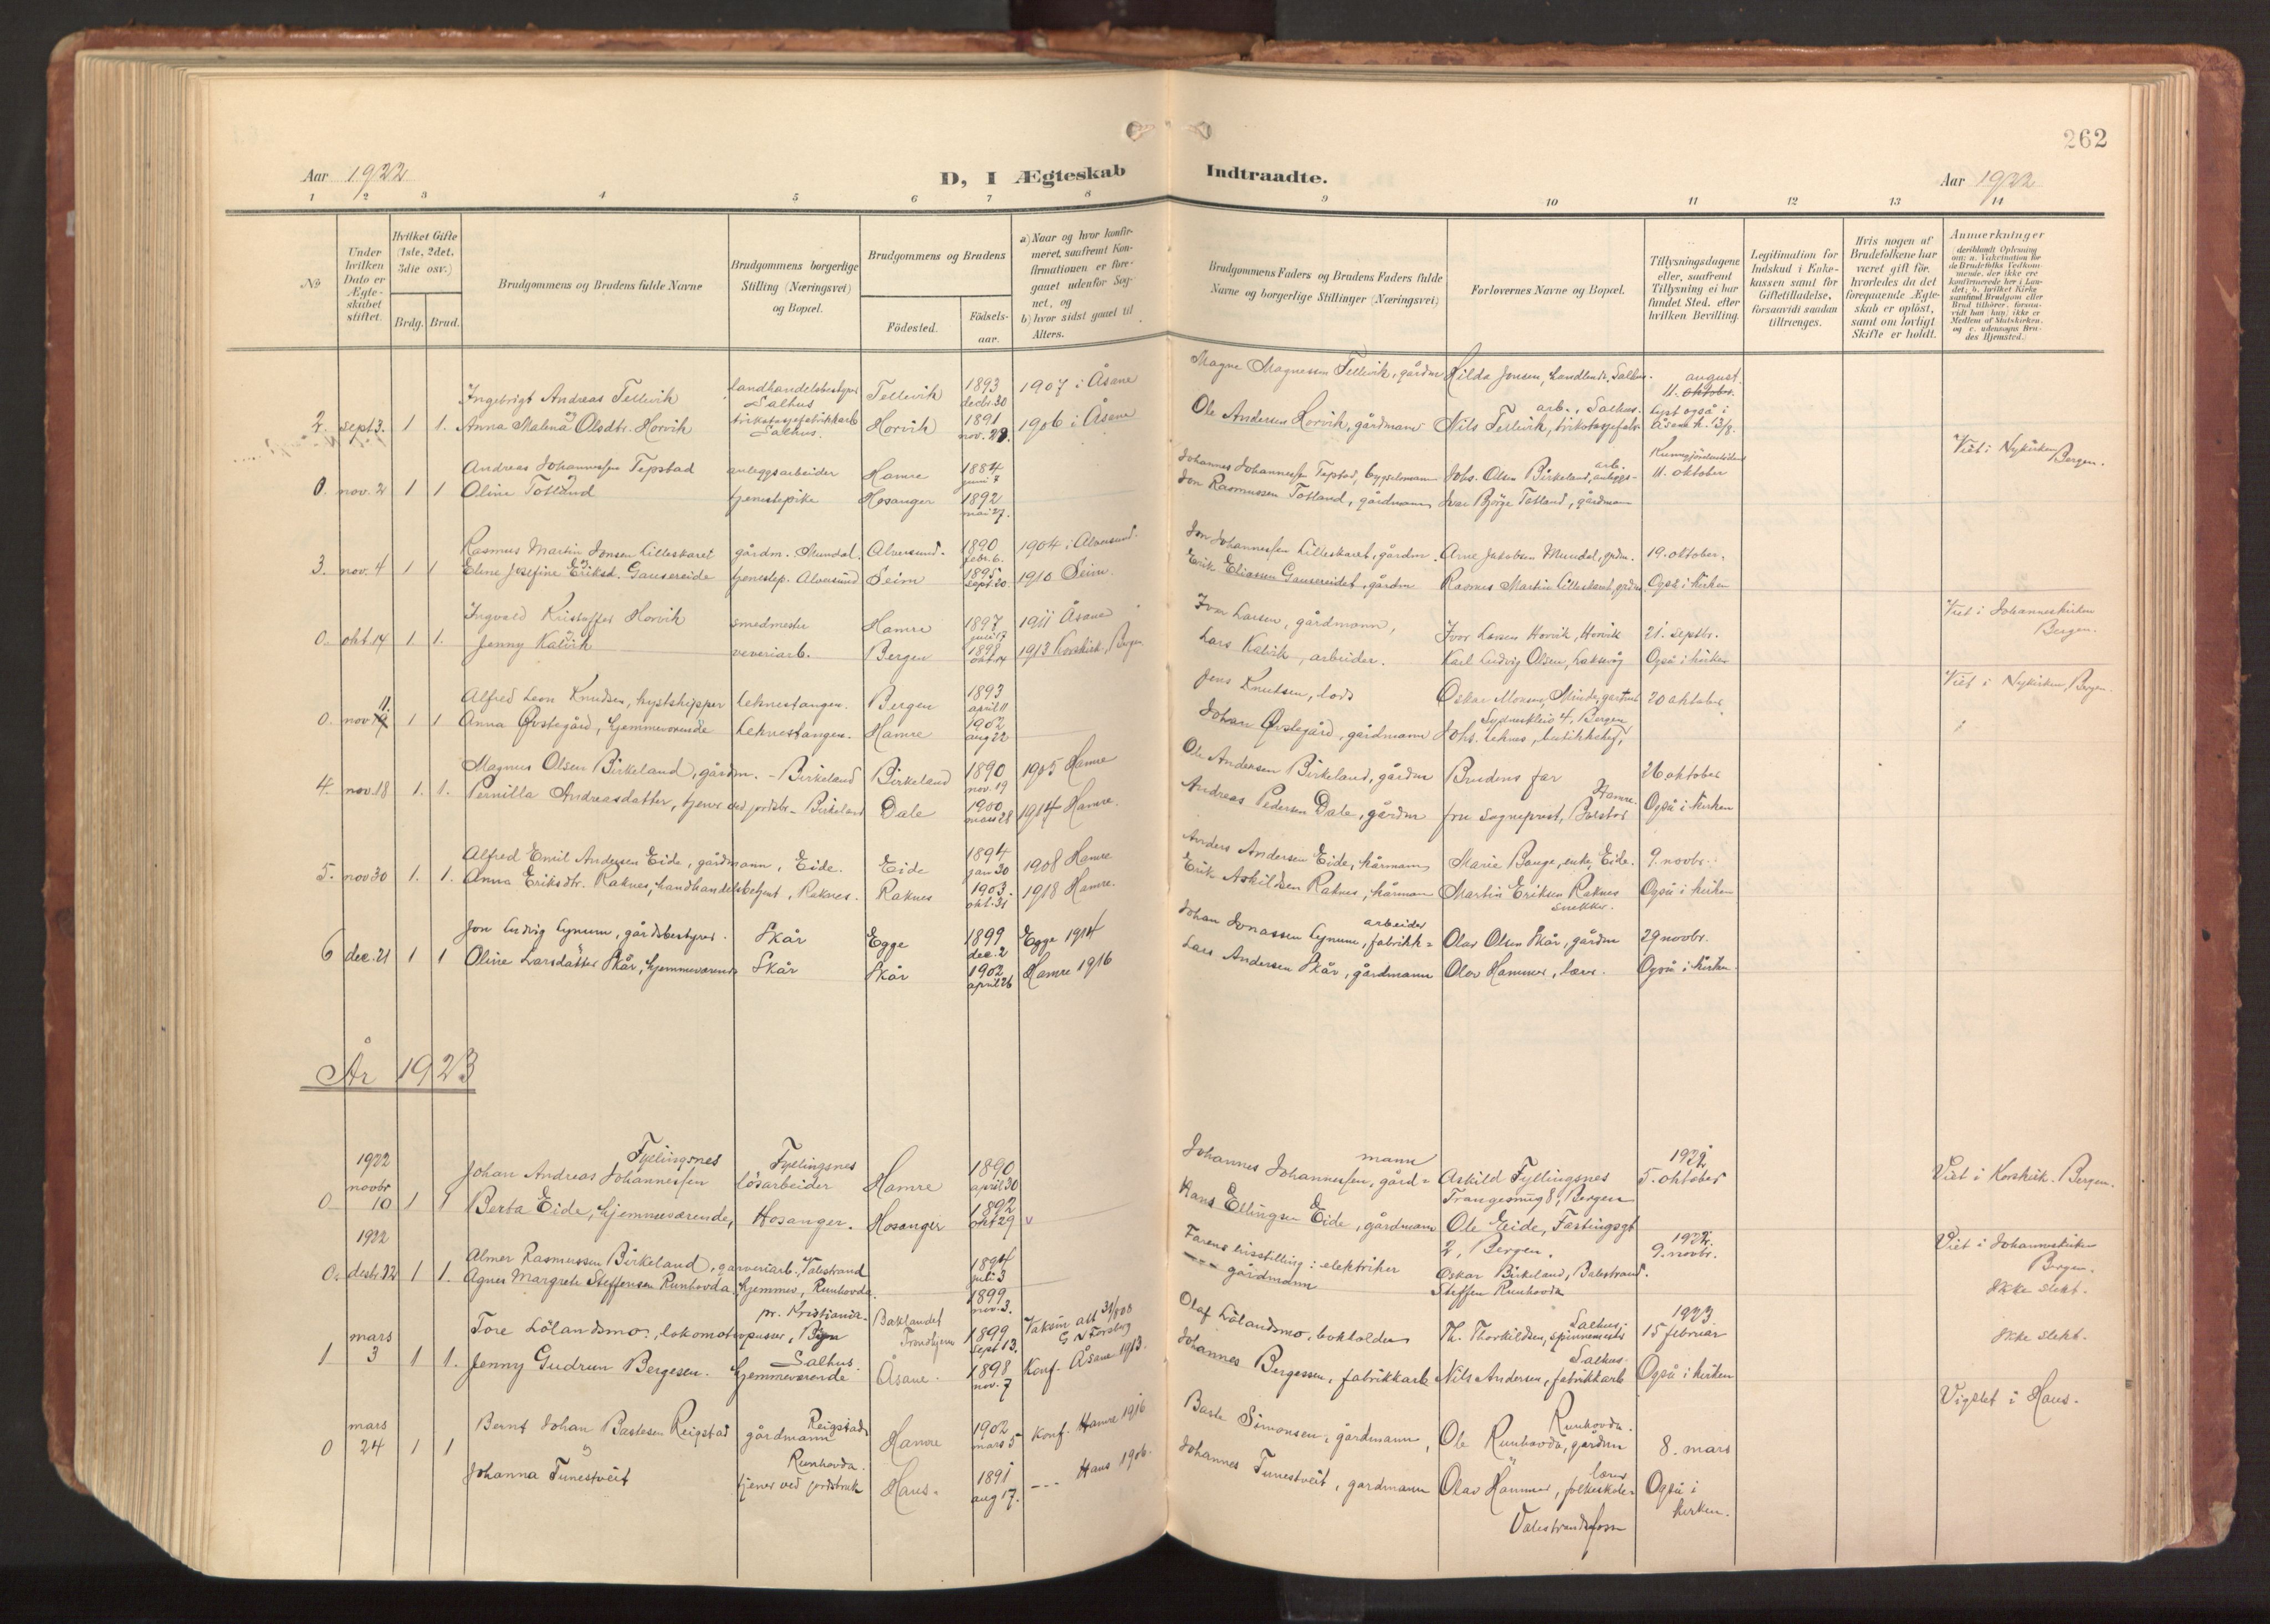 262
Aar 1922
D, I Ægteskab Indtraadte.
Aar 1922
1 2 3 4 5 6 7 8 9 10 11 12 13 14
No
Under hvilken Dato er Ægteskabet stiftet.
Hvilket Gifte (1ste, 2det, 3die osv.)
Brdg. Brud.
Brudgommens og Brudens fulde Navne
Brudgommens borgerlige Stilling (Næringsvei) og Bopæl.
Brudgommens og Brudens
Fødested.
Fødselsaar.
a) Naar og hvor konfirmeret, saafremt Konfirmationen er foregaaet udenfor Sognet, og
b) hvor sidst gaaet til Alters.
Brudgommens Faders og Brudens Faders fulde Navne og borgerlige Stillinger (Næringsvei)
Forlovernes Navne og Bopæl.
Tillysningsdagene eller, saafremt Tillysning ei har fundet Sted, efter hvilken Bevilling.
Legitimation for Indskud i Enkekassen samt for Giftetilladelse, forsaavidt saadan tiltrænges.
Hvis nogen af Brudefolkene har været gift før, hvorledes da det foregaaende Ægteskab er opløst, samt om lovligt Skifte er holdt.
Anmærkninger
Ingebrigt Andreas Tellevik landhandelsbestyrer Salhus Tellevik 1893 decbr. 30 1907 i Åsane Magne Magnessen Tellevik, gårdm Hilda Jensen, Landhandl. Salhus. august 11. oktober
2. sept 3. 1 1. Anna Malena Olsdtr. Horvik trikotagefabrikkarb Salhus. Horvik 1891 nov. 28. 1906 i Åsane Ole Andersen Horvik, gårdmann Nils Tellevik, trikotagefabr. arb., Salhus. lyst også i Åsane k. 13/8.
Andreas Johannessen Tepstad anleggsarbeider Hamre 1884 juni 7 Johannes Johannessen Tepstad, bygselmann Johs. Olsen Birkeland, anleggs-arb. Kunngjørelsestiden 11. oktober Viet i Nykirken Bergen.
0. nov. 2 1 1 Oline Totland tjenestepike Hosanger 1892 mai 27. Jon Rasmussen Totland, gårdmann Ivar Bjørge Totland, gårdmann
Rasmus Martin Jonsen Lilleskaret gårdm. Mundal. Alversund. 1890 febr. 6. 1904 i Alversund. Jon Johannessen Lilleskaret, gårdm. Arne Jakobsen Mundal, grdm. 19. oktober.
3. nov. 4 1 1 Eline Josefine Eriksd. Gausereide tjenestep. Alversund Seim 1895 sept 30 1910 Seim. Erik Eliassen Gausereidet, gårdm Rasmus Martin Lilleskaret, grdm. Også i kirken
Ingvald Kristoffer Horvik smedmester Hamre 1897 juli 17 1911 Åsane Ivar Larsen, gårdmann, Ivar Larsen Horvik, Horvik 21. septbr. Viet i Johanneskirken Bergen.
0. okt. 14 1. 1. Jenny Kalvik veveriarb. Bergen 1898 okt 14 1913 Korskirk. Bergen Lars Kalvik, arbeider. Karl Ludvig Olsen, Laksevåg Også i kirken
Alfred Leon Knudsen, kystskipper Leknestangen. Bergen 1893 april 11 Jens Knutsen, lods Oskar Monsen, Minde, gartner 20 oktober Viet i Nykirken, Bergen.
0. nov 11. 1 1 Anna Øvstegård, hjemmeværende Leknestangen. Hamre 1902 aug 22 Johan Øvstegård, gårdmann Sydneskleiv 4, Bergen Johs. Leknes, butikkbetj.
Magnus Olsen Birkeland, gårdm. - Birkeland Birkeland 1890 nov. 19 1905 Hamre Ole Andersen Birkeland, gårdm Brudens far 26 oktober
4. nov. 18 1. 1. Pernilla Andreasdatter, tjener ved jordbr. - Birkeland Dale 1900 mars 28 1914 Hamre. Andreas Pedersen Dale, gårdm fru Sogneprest, Bolstad Hamre. Også i kirken
Alfred Emil Andersen Eide, gårdmann, Eide. Eide 1894 jan 30 1908 Hamre Anders Andersen Eide, kårmann Marie Bauge, enke, Eide. 9. novbr.
5. nov 30 1. 1. Anna Eriksdtr. Raknes, Landhandelsbetjent, Raknes. Raknes 1903. okt. 31 1918 Hamre. Erik Askildsen Raknes, kårmann Martin Eriksen Raknes snekker. Også i kirken
Jon Ludvig Lynum, gårdsbestyrer. Skår Egge 1899 dec. 2 Egge 1914 Johan Jonassen Lynum, fabrikk= arbeider Olav Olsen Skår, gårdm 29 novbr.
6 dec. 21 1 1 Oline Larsdatter Skår, hjemmeværende Skår Skår 1902 april 26 Hamre 1916 Lars Andersen Skår, gårdmann Olav Hammer, lærer. Også i kirken.
År 1923
1922 novbr Johan Andreas Johannessen Fyllingsnes Fyllingsnes løsarbeider Hamre 1890 april 30 Johannes Johannessen, gård= mann Askild Fyllingsnes Trangesmug 8, Bergen 1922 5. oktober Viet i Korskirk. Bergen.
0 10 1 1 Berta Eide, hjemmeværende, Hosanger. Hosanger 1892 okt 29 Hans Ellingsen Eide, gårdmann Ole Eide, Fastingsgt 2, Bergen.
1922 Almer Rasmussen Birkeland, garveriarb., Valestrand 1894 juli 3 Farens livsstilling: elektriker Oskar Birkeland, Balestrand. 1922. 9. novbr. Viet i Johanneskirken Bergen. Ikke slekt.
0. desbr. 22 1 1. Agnes Margrete Steffensen Runhovda, hjemmev, Runhovda. 1899 nov. 3. --- gårdmann Steffen Runhovda
mars Tore Lölandsmo, lokomotivpusser, Bryn pr. Kristiania Baklandet Trondhjem 1899 sept 13. Vaksin att 31/8 08 G N Forsberg Olaf Lölandsmo, bokholder Th. Thorkildsen, spinnemester Salhus. 1923 15 februar Ikke slekt.
1 3 1 1. Jenny Gudrun Bergesen. Salhus. hjemmeværende Åsane. 1898 nov. 7 Konf. Åsane 1913. Johannes Bergessen, fabrikkarb Nils Andersen, fabrikkarb Salhus. Også i kirken
mars Bernt Johan Bastesen Reigstad Reigstad gårdmann Hamre 1902 mars 5 Konf. Hamre 1916 Baste Simonsen, gårdmann, Ole Runhovda, gårdm Runhovda. 8. mars Vigslet i Haus.
0 24 1 1
Johanna Tunestveit Runhovda. tjener ved jordbruk Haus. 1891 aug 17. --- Haus 1906. Johannes Tunestveit, gardmann Olav Hammer, folkeskole= lærer Valestrandsfossen Også i kirken.